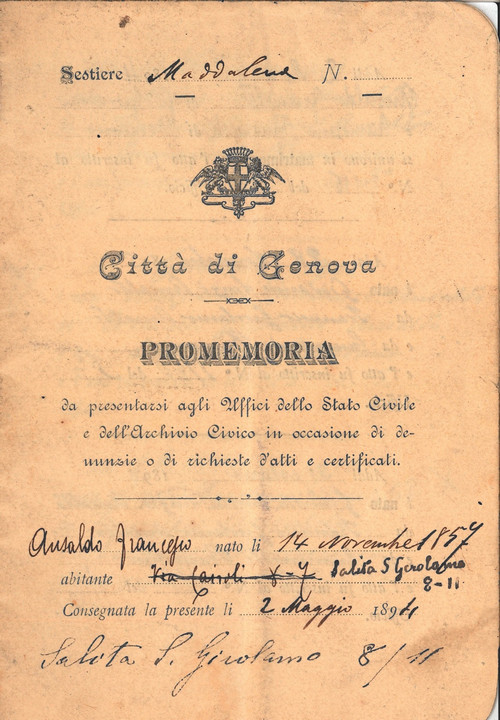 Sestiere Maddalena N.
Città di Genova
PROMEMORIA
da presentarsi agli Uffici dello Stato Civile
e dell'Archivio Civico in occasione di de-
nunzie o di richieste d'atti e certificati.
Ansaldo nato li 14 Novembre 1857
abitante Via Cairoli 8-7 Salita S Girolamo
8-11
Consegnata la presente li 2 Maggio 1894
Salita S. Girolamo 8/11